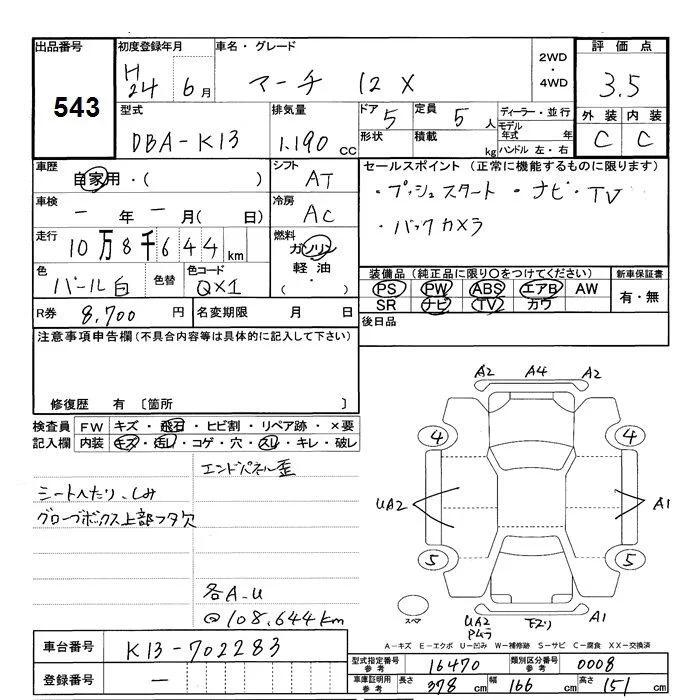 出品番号 初度登録年月 車名・グレード 2WD・4WD 評価点
543 H24年 6月 マーチ 12X 3.5
型式 排気量 ドア 5 定員 5人 ディーラー・並行 外装 内装
DBA-K13 1.190cc 形状 積載 kg モデル年式 年 ハンドル 左・右 C C
車歴 自家用・( ) シフト AT セールスポイント(正常に機能するものに限ります)
車検 ー年ー月( 日) 冷房 AC ・プッシュスタート ・ナビ・TV
走行 10万8千644km 燃料 ガソリン 軽油 ・( ) ・バックカメラ
色 パール白 色替 色コード QX1 装備品(純正品に限り○をつけてください) 新車保証書
PS PW ABS エアB AW 有・無
SR ナビ TV カワ
R券 8,700円 名変期限 月 日 後日品
注意事項申告欄(不具合内容等は具体的に記入して下さい)
修復歴 有 〔箇所 〕
検査員記入欄 FW キズ・飛石・ヒビ割・リペア跡・×要
内装 キズ・汚レ・コゲ・穴・スレ・キレ・破レ
エンドパネル歪
シートへたり、しみ
グローブボックス上部フタ欠
各A-U
@108,644km
A2 A4 A2
4 4
UA2 A1
5 5
スペア UA2 Pムラ 下ズリ A1
A-キズ E-エクボ U-凹み W-補修跡 S-サビ C-腐食 XX-交換済
車台番号 K13-702283
登録番号 ー
型式指定番号参考 16470 類別区分番号参考 0008
車庫証明用参考 長さ 378cm 幅 166cm 高さ 151cm